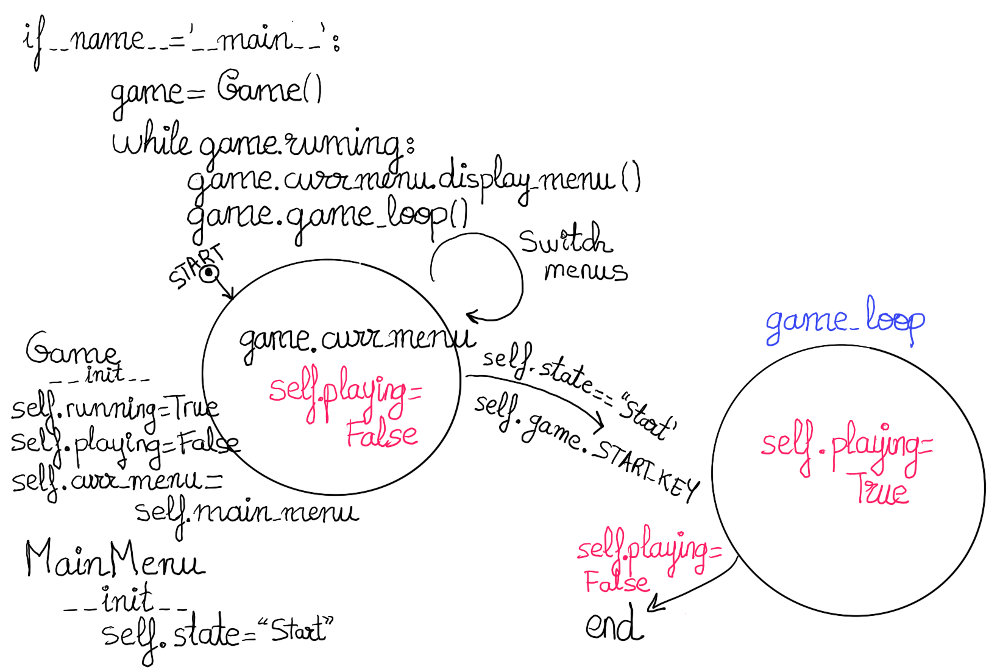 if __name__='__main__':
game= Game()
while game.runing:
game.curr_menu.display_menu()
game.game_loop()
START
Switch
menus
game.curr_menu
self.playing=
False
Game
__init__
self.running=True
self.playing=False
self.curr_menu=
self.main_menu
MainMenu
__init__
self.state="Start"
self.state=="Start'
self.game.START_KEY
game_loop
self.playing=
True
self.playing=
False
end